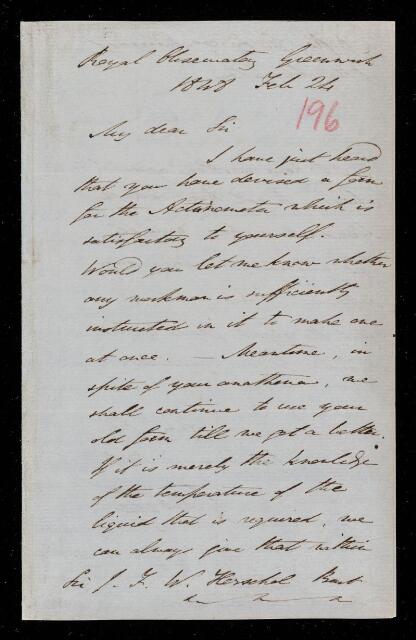 Royal Observatory Greenwich
1848 Feb 24
196
My dear Sir
I have just heard
that you have devised a form
for the Actinometer which is
satisfactory to yourself.
Would you let me know whether
any workman is sufficiently
instructed in it to make one
at once. — Meantime, in
spite of your anathema, we
shall continue to use your
old form till we get a better.
If it is merely the knowledge
of the temperature of the
liquid that is required, we
can always give that within
Sir J. F. W. Herschel Bart